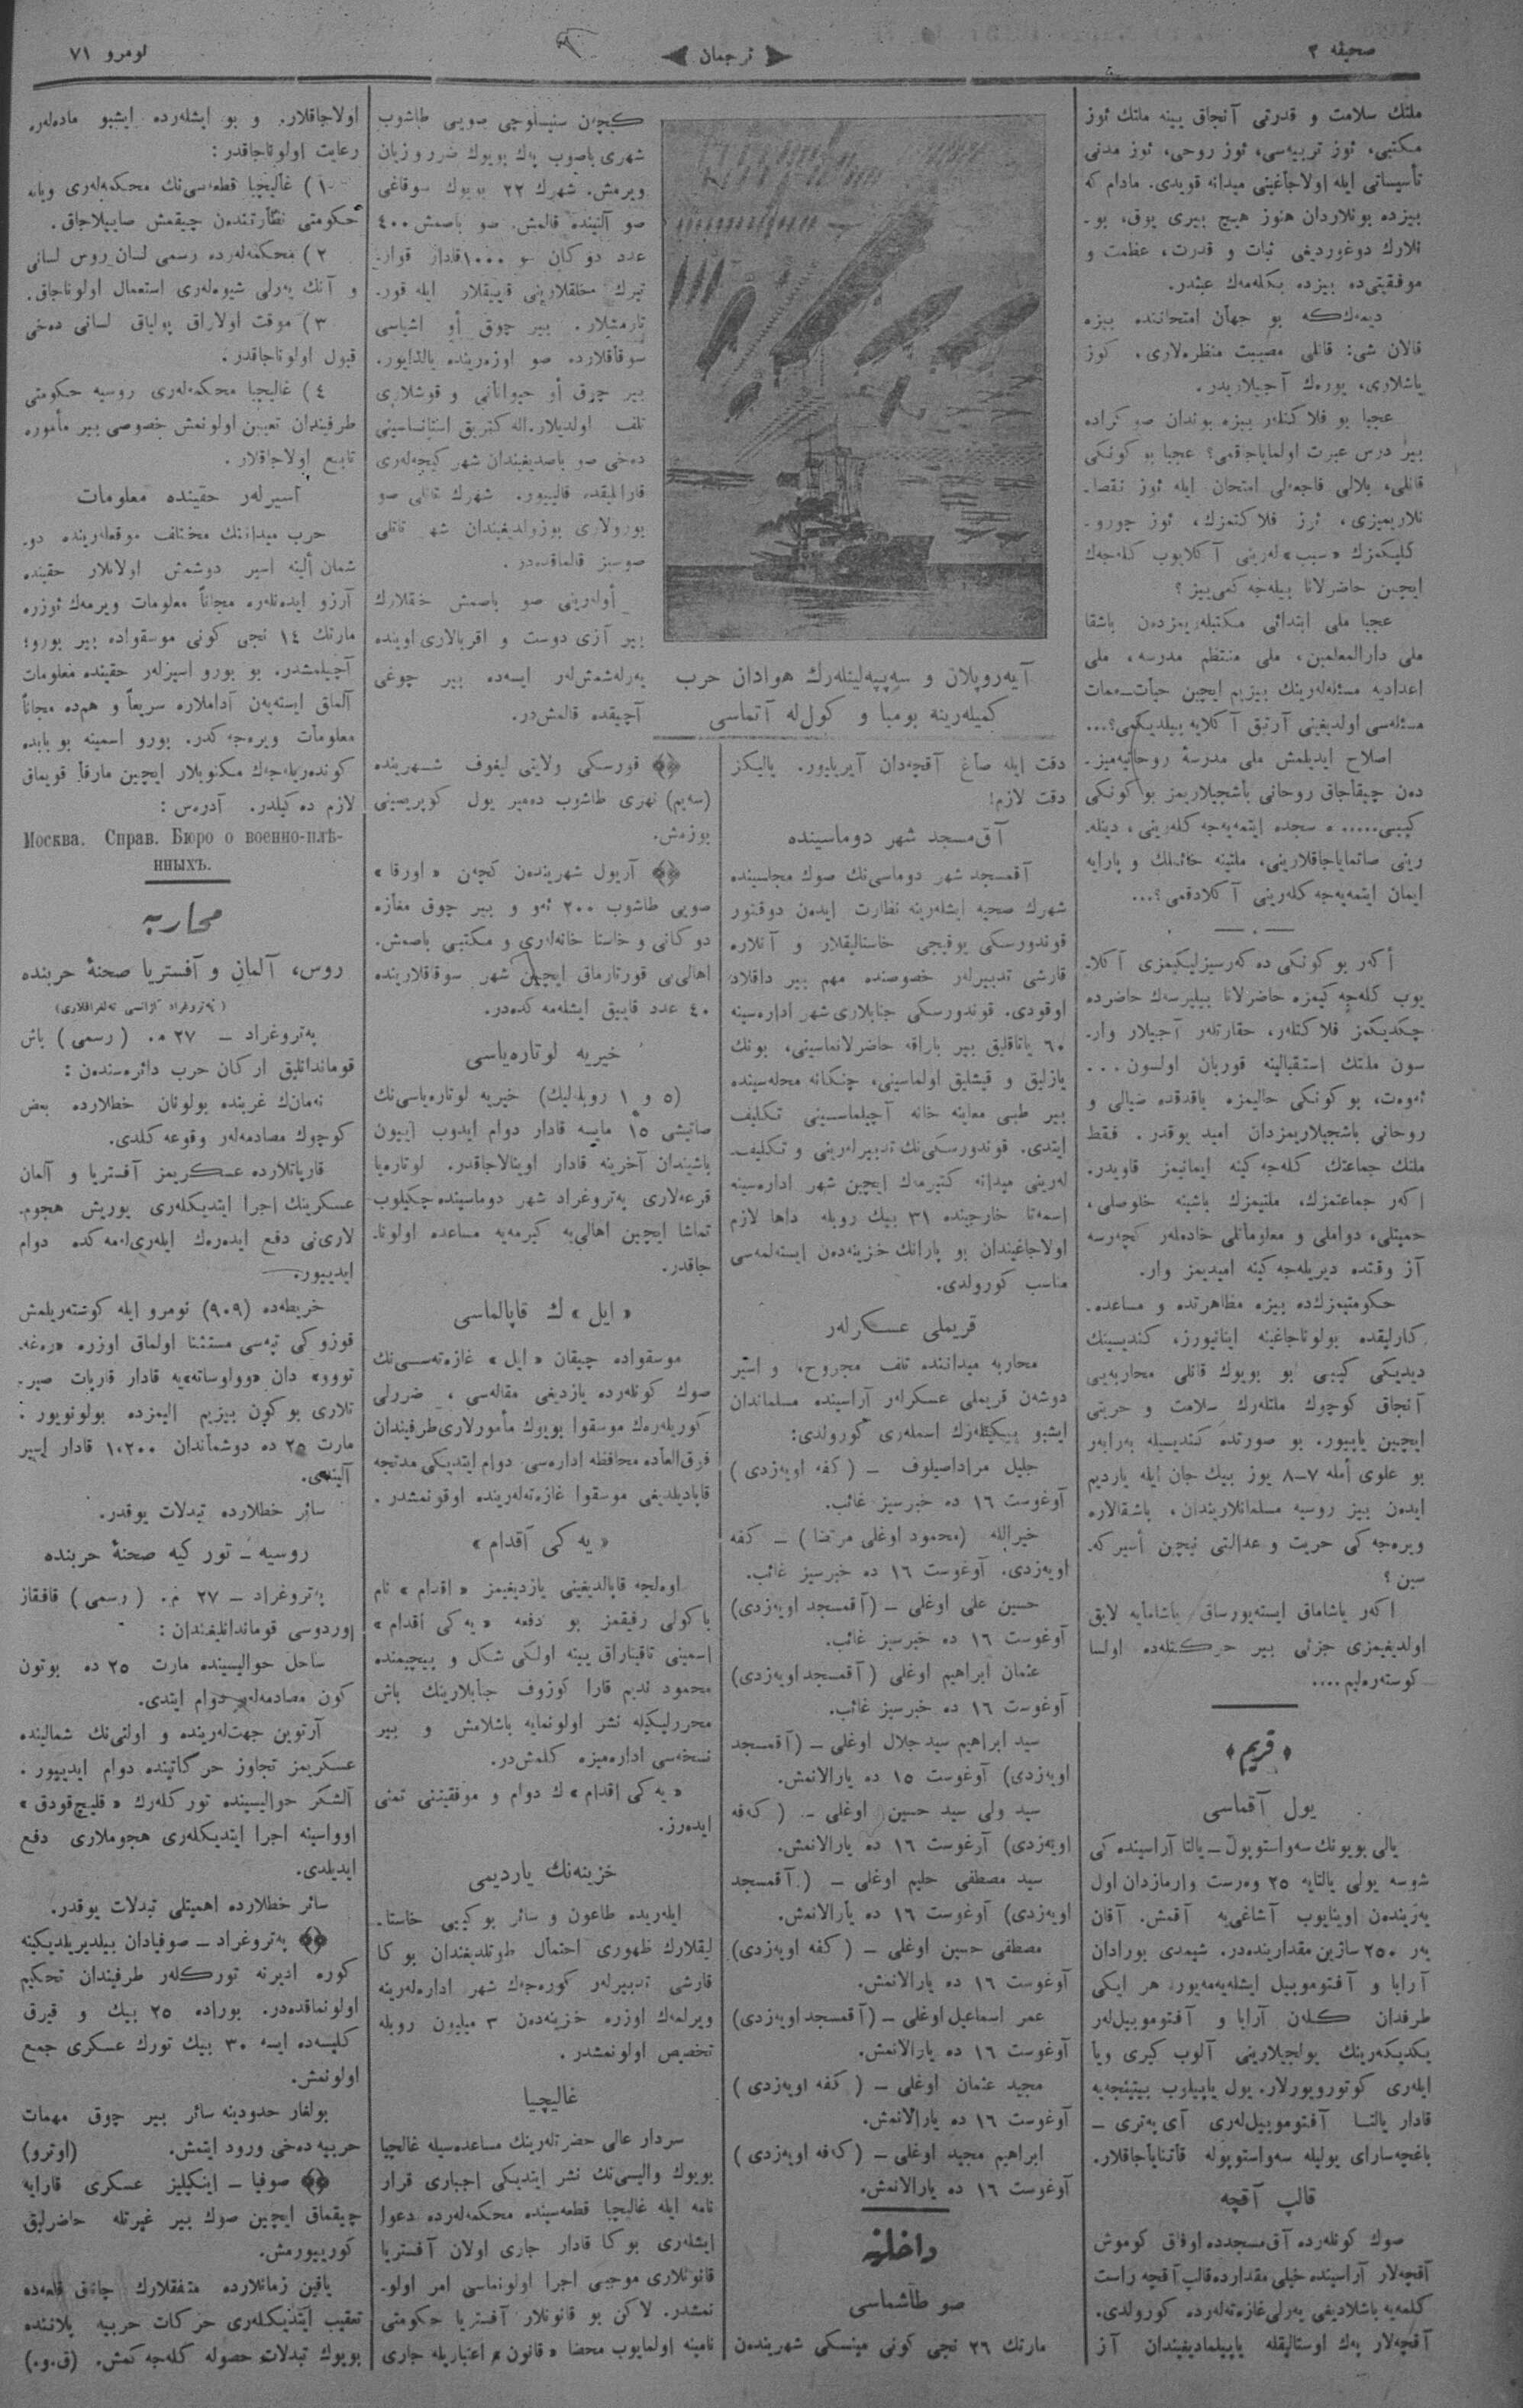 صحیفه ٢
ترجمان
نومرو ٧١
ملتك سلامت و قدرتی آنجاق یینه ملتك ئوز
مكتبی، ئوز تربیه‌سی، ئوز روحی، ئوز مدنی
تأسیساتی ایله اولاجاغینی میدانه قویدی. مادام كه
بیزده بونلاردان هنوز هیچ بیری یوق، بو-
نلارك دوغوردیغی ثبات و قدرت، عظمت و
موفقیتی‌ده بیزده بكله‌مه‌ك عبثدر.
دیمه‌ك‌كه بو جهان امتحاننده بیزه
قالان شی: قانلی مصیبت منظره‌لاری، كوز
یاشلاری، یوره‌ك آجیلاریدر.
عجبا بو فلاكتلر بیزه بوندان صوكراده
بیر درس عبرت اولمایاجاقمی؟ عجبا بو كونكی
قانلی، بلالی فاجعه‌لی امتحان ایله ئوز نقصا-
نلاریمیزی، ئوز فلاكتمزك، ئوز چورو-
كلیكمزك «سبب»له‌رینی آكلایوب كله‌جه‌ك
ایچین حاضرلانا بیله‌جه‌كمی‌ییز؟
عجبا ملی ابتدائی مكتبله‌ریمزدن باشقا
ملی دارالمعلمین، ملی منتظم مدرسه، ملی
اعدادیه مسئله‌له‌رینك بیزیم ایچین حیات-ممات
مسئله‌سی اولدیغینی آرتیق آكلایه بیلدیكمی؟...
اصلاح ایدیلمش ملی مدرسهٔ روحانیه‌میز-
دن چیقاجاق روحانی باشجیلاریمز بو كونكی
كیبی..... ه سجده ایتمه‌یه‌جه‌كله‌رینی، دینله-
رینی صاتمایاجاقلارینی، ملتینه خائنلك و پارایه
ایمان ایتمه‌یه‌جه‌كله‌رینی آكلادقمی؟...
أكه‌ر بو كونكی ده‌كه‌رسیزلیكیمزی آكلا-
یوب كله‌جه‌كیمزه حاضرلانا بیلیرسه‌ك حاضرده
چكدیكمز فلاكتلر، حقارتلر آجیلار وار-
سون ملتك استقبالینه قوربان اولسون...
ئه‌وه‌ت، بو كونكی حالیمزه باقدقده ضیالی و
روحانی باشجیلاریمزدان امید یوقدر. فقط
ملتك جماعتك كله‌جه‌كینه ایمانیمز قاویدر.
اكه‌ر جماعتمزك، ملتیمزك باشینه خلوصلی،
حمیتلی، دواملی و معلوماتلی خادملر كچه‌رسه
آز وقتده دیریله‌جه‌كینه امیدیمز وار.
حكومتیمزك‌ده بیزه مظاهرتده و مساعده-
كارلیقده بولوناجاغینه اینانیورز، كندیسینك
دیدیكی كیبی بو بویوك قانلی محاربه‌یی
آنجاق كوچوك ملتلرك سلامت و حریتی
ایچین یاپیور. بو صورتده كندیسیله به‌رابه‌ر
بو علوی أمله ٧-٨ یوز بیك جان ایله یاردیم
ایدن بیز روسیه مسلمانلاریندان، باشقالاره
ویره‌جه‌كی حریت و عدالتی نیچین أسیركه-
سین؟
اكه‌ر یاشاماق ایسته‌یورساق یاشامایه لایق
اولدیغیمزی جزئی بیر حركتله‌ده اولسا
كوسته‌ره‌لیم....
«قریم»
یول آقماسی
یالی بویونك سه‌واستوپول-یالتا آراسینده‌كی
شوسه یولی یالتایه ٢٥ وه‌رست وارمازدان اول
یه‌ریندن اوینایوب آشاغی‌یه آقمش. آقان
یه‌ر ٢٥٠ سازین مقدارینده‌در. شیمدی بورادان
آرابا و آفتوموبیل ایشله‌یه‌مه‌یور. هر ایكی
طرفدان كلن آرابا و آفتوموبیل‌لر
یكدیكه‌رینك یولجیلارینی آلوب كیری ویا
ایله‌ری كوتورویورلار. یول یاپیلوب بیتینجه‌یه
قادار یالتا آفتوموبیل‌له‌ری آی‌په‌تری -
باغچه‌سارای یولیله سه‌واستوپوله قاتنایاجاقلار.
قالپ آقچه
صوك كونله‌رده آق‌مسجدده اوفاق كوموش
آقچه‌لار آراسینده خیلی مقدارده قالپ آقچه راست
كلمه‌یه باشلادیغی یه‌رلی غازه‌ته‌له‌رده كورولدی.
آقچه‌لار په‌ك اوستالیقله یاپیلمادیغیندان آز
آیه‌روپلان و سه‌پپه‌لینله‌رك هوادان حرب
كمیله‌رینه بومبا و كول‌له آتماسی
دقت ایله صاغ آقچه‌دان آیریلیور. یالیكز
دقت لازم!
آق‌مسجد شهر دوماسینده
آقمسجد شهر دوماسی‌نك صوك مجلسینده
شهرك صحیه ایشله‌رینه نظارت ایدن دوقتور
قوندورسكی یوقیجی خاستالیقلار و آنلاره
قارشی تدبیرلر خصوصنده مهم بیر داقلاد
اوقودی. قوندورسكی جنابلاری شهر اداره‌سینه
٦٠ یاتاقلیق بیر باراقه حاضرلانماسینی، بونك
یازلیق و قیشلیق اولماسینی، چنكانه محله‌سینده
بیر طبی معاینه خانه آچیلماسینی تكلیف
ایتدی. قوندورسكی‌نك تدبیرله‌رینی و تكلیف-
له‌رینی میدانه كتیرمه‌ك ایچین شهر اداره‌سینه
اسمه‌تا خارجنده ٣١ بیك روبله داها لازم
اولاجاغیندان بو پارانك خزینه‌دن ایسته‌لمه‌سی
مناسب كورولدی.
قریملی عسكرلر
محاربه میداننده تلف مجروح، و اسیر
دوشن قریملی عسكرلر آراسینده مسلماندان
ایشبو ییكیتلرك اسمله‌ری كورولدی:
جلیل مراداصیلوف - (كفه اویه‌زدی)
آوغوست ١٦ ده خبرسیز غائب.
خیرالله (محمود اوغلی مرتضا) - كفه
اویه‌زدی. آوغوست ١٦ ده خبرسیز غائب.
حسین علی اوغلی - (آقمسجد اویه‌زدی)
آوغوست ١٦ ده خبرسیز غائب.
عثمان ابراهیم اوغلی (آقمسجد اویه‌زدی)
آوغوست ١٦ ده خبرسیز غائب.
سید ابراهیم سید جلال اوغلی - (آقمسجد
اویه‌زدی) آوغوست ١٥ ده یارالانمش.
سید ولی سید حسین اوغلی - (كفه
اویه‌زدی) آوغوست ١٦ ده یارالانمش.
سید مصطفی حلیم اوغلی - (آقمسجد
اویه‌زدی) آوغوست ١٦ ده یارالانمش.
مصطفی حسین اوغلی - (كفه اویه‌زدی)
آوغوست ١٦ ده یارالانمش.
عمر اسماعیل اوغلی - (آقمسجد اویه‌زدی)
آوغوست ١٦ ده یارالانمش.
مجید عثمان اوغلی - (كفه اویه‌زدی)
آوغوست ١٦ ده یارالانمش.
ابراهیم مجید اوغلی - (كفه اویه‌زدی)
آوغوست ١٦ ده یارالانمش.
داخلیه
صو طاشماسی
مارتك ٢٦ نجی كونی مینسكی شهریندن
كچن سنیسلوچی صویی طاشوب
شهری باصوب په‌ك بویوك ضرر و زیان
ویرمش. شهرك ٢٢ بویوك سوقاغی
صو آلتینده قالمش. صو باصمش ٤٠٠
عدد دوكان و ١٠٠٠ قادار قوار-
تیرك خلقلارینی قاییقلار ایله قور-
تارمشلار. بیر چوق أو اشیاسی
سوقاقلارده صو اوزه‌رینده یالدایور.
بیر چوق أو حیواناتی و قوشلاری
تلف اولدیلار. اله‌كتریق استانساسینی
دخی صو باصدیغیندان شهر كیچه‌له‌ری
قارانلیقده قالییور. شهرك تاتلی صو
بورولاری بوزولدیغیندان شهر تاتلی
صوسیز قالماقده‌در.
أوله‌رینی صو باصمش خلقلارك
بیر آزی دوست و اقربالاری اوینده
یه‌رله‌شمش‌لر ایسه‌ده بیر چوغی
آچیقده قالمش‌در.
قورسكی ولایتی لیغوف شهرینده
(سه‌یم) نهری طاشوب ده‌میر یول كوپریسینی
بوزمش.
آریول شهریندن كچن «اورقا»
صویی طاشوب ٢٠٠ ئه‌و و بیر چوق مغازه
دوكانی و خاستا خانه‌له‌ری و مكتبی باصمش.
اهالی‌یی قورتارماق ایچین شهر سوقاقلارینده
٤٠ عدد قاییق ایشله‌مه‌كده‌در.
خیریه لوتاره‌یاسی
(٥ و ١ روبله‌لیك) خیریه لوتاره‌یاسی‌نك
صاتیشی ١٥ مایسه قادار دوام ایدوب آییون
باشیندان آخرینه قادار اوینالاجاقدر. لوتاره‌یا
قرعه‌لاری په‌تروغراد شهر دوماسینده چكیلوب
تماشا ایچین اهالی‌یه كیرمه‌یه مساعده اولونا-
جاقدر.
«ایل»ك قاپالماسی
موسقواده چیقان «ایل» غازه‌ته‌سی‌نك
صوك كونله‌رده یازدیغی مقاله‌سی، ضررلی
كوریله‌رك موسقوا بویوك مأمورلاری طرفیندان
فوق‌العاده محافظه اداره‌سی دوام ایتدیكی مدتجه
قاپادیلدیغی موسقوا غازه‌ته‌له‌رینده اوقونمشدر.
«یه‌كی آقدام»
اوه‌لجه قاپالدیغینی یازدیغیمز «اقدام» نام
باكولی رفیقمز بو دفعه «یه‌كی اقدام»
اسمینی تاقیناراق یینه اولكی شكل و بیچیمنده
محمود ندیم قارا كوزوف جنابلارینك باش
محررلیكیله نشر اولونمایه باشلامش و بیر
نسخه‌سی اداره‌میزه كلمش‌در.
«یه‌كی اقدام»ك دوام و موفقیتنی تمنی
ایده‌رز.
خزینه‌نك یاردیمی
ایله‌ریده طاعون و سائر بو كیبی خاستا-
لیقلارك ظهوری احتمال طوتلدیغندان بو كا
قارشی تدبیرلر كوره‌جه‌ك شهر اداره‌له‌رینه
ویرلمه‌ك اوزره خزینه‌دن ٣ میلیون روبله
تخصیص اولونمشدر.
غالیچیا
سردار عالی حضرتله‌رینك مساعده‌سیله غالیچیا
بویوك والیسی‌نك نشر ایتدیكی اجباری قرار
نامه ایله غالیچیا قطعه‌سینده محكمه‌له‌رده دعوا
ایشله‌ری بو كا قادار جاری اولان آفستریا
قانونلاری موجبی اجرا اولونماسی امر اولو-
نمشدر. لاكن بو قانونلار آفستریا حكومتی
نامینه اولمایوب محضا «قانون» اعتباریله جاری
اولاجاقلار. و بو ایشله‌رده ایشبو ماده‌له‌ره
رعایت اولوناجاقدر:
١) غالیچیا قطعه‌سی‌نك محكمه‌له‌ری ویانه
حكومتی نظارتندن چیقمش صاییلاجاق.
٢) محكمه‌له‌رده رسمی لسان روس لسانی
و آنك یه‌رلی شیوه‌له‌ری استعمال اولوناجاق.
٣) موقت اولاراق پولیاق لسانی دخی
قبول اولوناجاقدر.
٤) غالیچیا محكمه‌له‌ری روسیه حكومتی
طرفیندان تعیین اولونمش خصوصی بیر مأموره
تابع اولاجاقلار.
اسیرلر حقینده معلومات
حرب میداننك مختلف موقعله‌رینده دو-
شمان ألینه اسیر دوشمش اولانلار حقینده
آرزو ایدنله‌ره مجاناً معلومات ویرمه‌ك ئوزره
مارتك ١٤ نجی كونی موسقواده بیر بورو
آچیلمشدر. بو بورو اسیرلر حقینده معلومات
آلماق ایسته‌یه‌ن آداملاره سریعاً و هم‌ده مجاناً
معلومات ویره‌جه‌كدر. بورو اسمینه بو بابده
كونده‌ریله‌جه‌ك مكتوبلار ایچین مارقا قویماق
لازم ده‌كیلدر. آدره‌س:
Москва. Справ. Бюро о военно-плѣ-
нныхъ.
محاربه
روس، آلمان و آفستریا صحنهٔ حربنده
(په‌تروغراد آژانسی ته‌لغرافلاری)
په‌تروغراد - ٢٧ م. (رسمی) باش
قوماندانلیق اركان حرب دائره‌سندن:
نه‌مان‌ك غربنده بولونان خطلارده بعض
كوچوك مصادمه‌لر وقوعه كلدی.
قارپاتلارده عسكریمز آفستریا و آلمان
عسكرینك اجرا ایتدیكله‌ری یوریش هجوم-
لاری‌نی دفع ایده‌رك ایله‌ری‌له‌مه‌كده دوام
ایدییور.
خریطه‌ده (٩٠٩) نومرو ایله كوسته‌ریلمش
قوزوكی تپه‌سی مستثنا اولماق اوزره «ره‌غه-
تووو» دان «وواوساته»یه قادار قارپات صیر-
تلاری بو كون بیزیم الیمزده بولونویور.
مارت ٢٥ ده دوشماندان ١،٢٠٠ قادار اسیر
آلیندی.
سائر خطلارده تبدلات یوقدر.
روسیه - توركیه صحنهٔ حربنده
په‌تروغراد - ٢٧ م. (رسمی) قافقاز
اوردوسی قوماندانلیغندان:
ساحل حوالیسینده مارت ٢٥ ده بوتون
كون مصادمه‌لر دوام ایتدی.
آرتوین جهت‌له‌رینده و اولتی‌نك شمالینده
عسكریمز تجاوز حركاتینده دوام ایدییور.
آلشكر حوالیسینده توركلرك «قلیچ قودق»
اوواسینه اجرا ایتدیكله‌ری هجوملاری دفع
ایدیلدی.
سائر خطلارده اهمیتلی تبدلات یوقدر.
په‌تروغراد - صوفیادان بیلدیریلدیكینه
كوره ادیرنه توركلر طرفیندان تحكیم
اولونماقده‌در. بوراده ٢٥ بیك و قیرق
كلیسه‌ده ایسه ٣٠ بیك تورك عسكری جمع
اولونمش.
بولغار حدودینه سائر بیر چوق مهمات
حربیه دخی ورود ایتمش. (اوترو)
صوفیا - اینكیلیز عسكری قارایه
چیقماق ایچین صوك بیر غیرتله حاضرلیق
كورییورمش.
یاقین زمانلارده متفقلارك چاناق قلعه‌ده
تعقیب ایتدیكله‌ری حركات حربیه پلاننده
بویوك تبدلات حصوله كله‌جه‌كمش. (ق.و.)